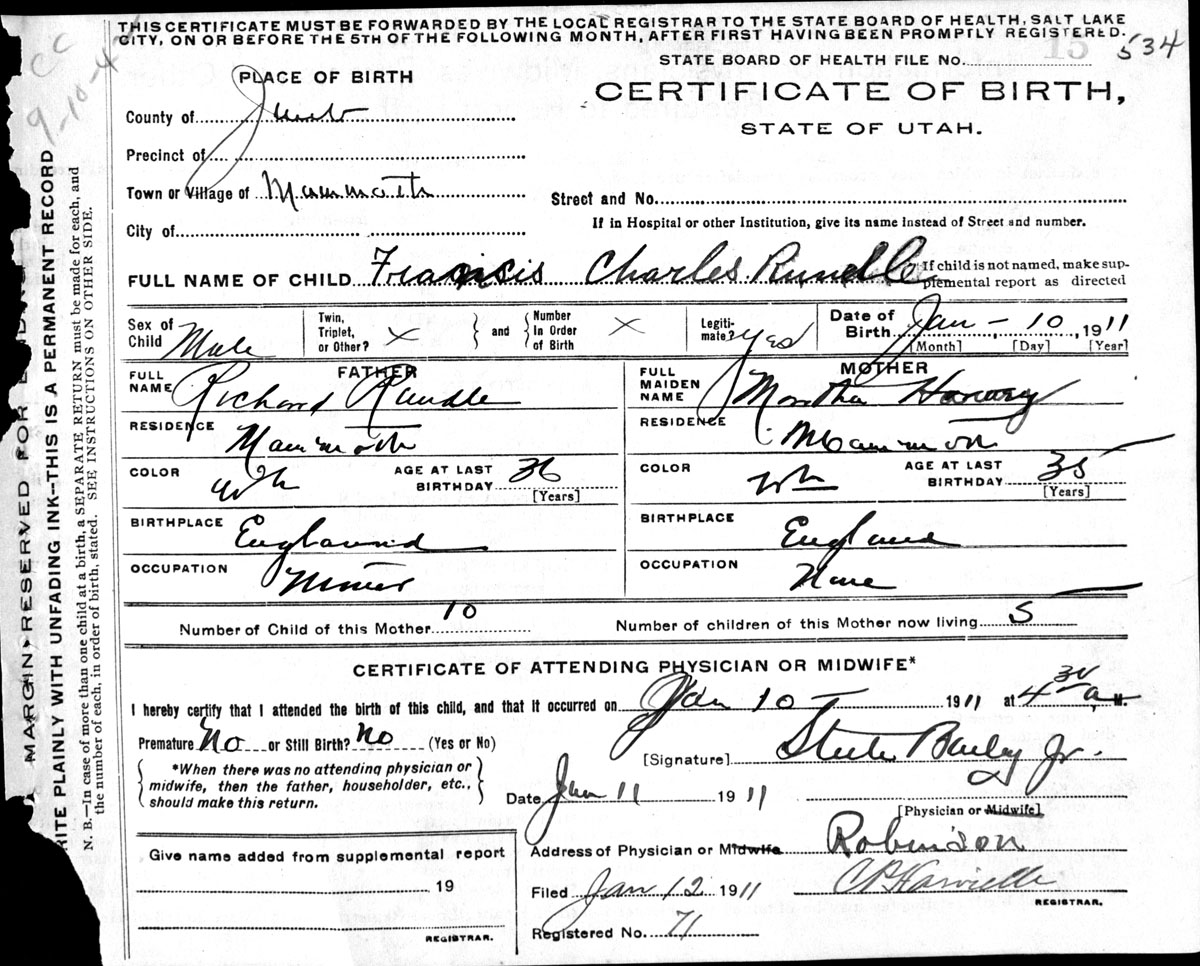 THIS CERTIFICATE MUST BE FORWARDED BY THE LOCAL REGISTRAR TO THE STATE BOARD OF HEALTH, SALT LAKE
CITY, ON OR BEFORE THE 5TH OF THE FOLLOWING MONTH, AFTER FIRST HAVING BEEN PROMPTLY REGISTERED.
15 534
STATE BOARD OF HEALTH FILE No.
CC
9-10-4
PLACE OF BIRTH
CERTIFICATE OF BIRTH,
STATE OF UTAH.
County of Juab
Precinct of
Town or Village of Mammoth
Street and No.
If in Hospital or other Institution, give its name instead of Street and number.
City of
FULL NAME OF CHILD Francis Charles Rundle
If child is not named, make sup-
plemental report as directed
Sex of Child Male
Twin, Triplet, or Other? X and Number In Order of Birth X
Legiti-mate? Yes
Date of Birth Jan - 10, 1911
[Month] [Day] [Year]
FATHER
FULL NAME Richard Rundle
RESIDENCE Mammoth
COLOR Wh AGE AT LAST BIRTHDAY 36
[Years]
BIRTHPLACE England
OCCUPATION Miner
MOTHER
FULL MAIDEN NAME Martha
RESIDENCE Mammoth
COLOR Wh AGE AT LAST BIRTHDAY 35
[Years]
BIRTHPLACE England
OCCUPATION None
Number of Child of this Mother 10
Number of children of this Mother now living 5
CERTIFICATE OF ATTENDING PHYSICIAN OR MIDWIFE*
I hereby certify that I attended the birth of this child, and that it occurred on Jan 10 1911 at 4 30 a M.
Premature No or Still Birth? No (Yes or No)
*When there was no attending physician or
midwife, then the father, householder, etc.,
should make this return.
[Signature] Steele Bailey Jr.
Date Jan 11 1911
[Physician or Midwife]
Address of Physician or Midwife Robinson
Filed Jan 12 1911
REGISTRAR.
Registered No. 71
Give name added from supplemental report
19
REGISTRAR.
MARGIN RESERVED FOR
RITE PLAINLY WITH UNFADING INK--THIS IS A PERMANENT RECORD
N. B.—In case of more than one child at a birth, a SEPARATE RETURN must be made for each, and
the number of each, in order of birth, stated. SEE INSTRUCTIONS ON OTHER SIDE.